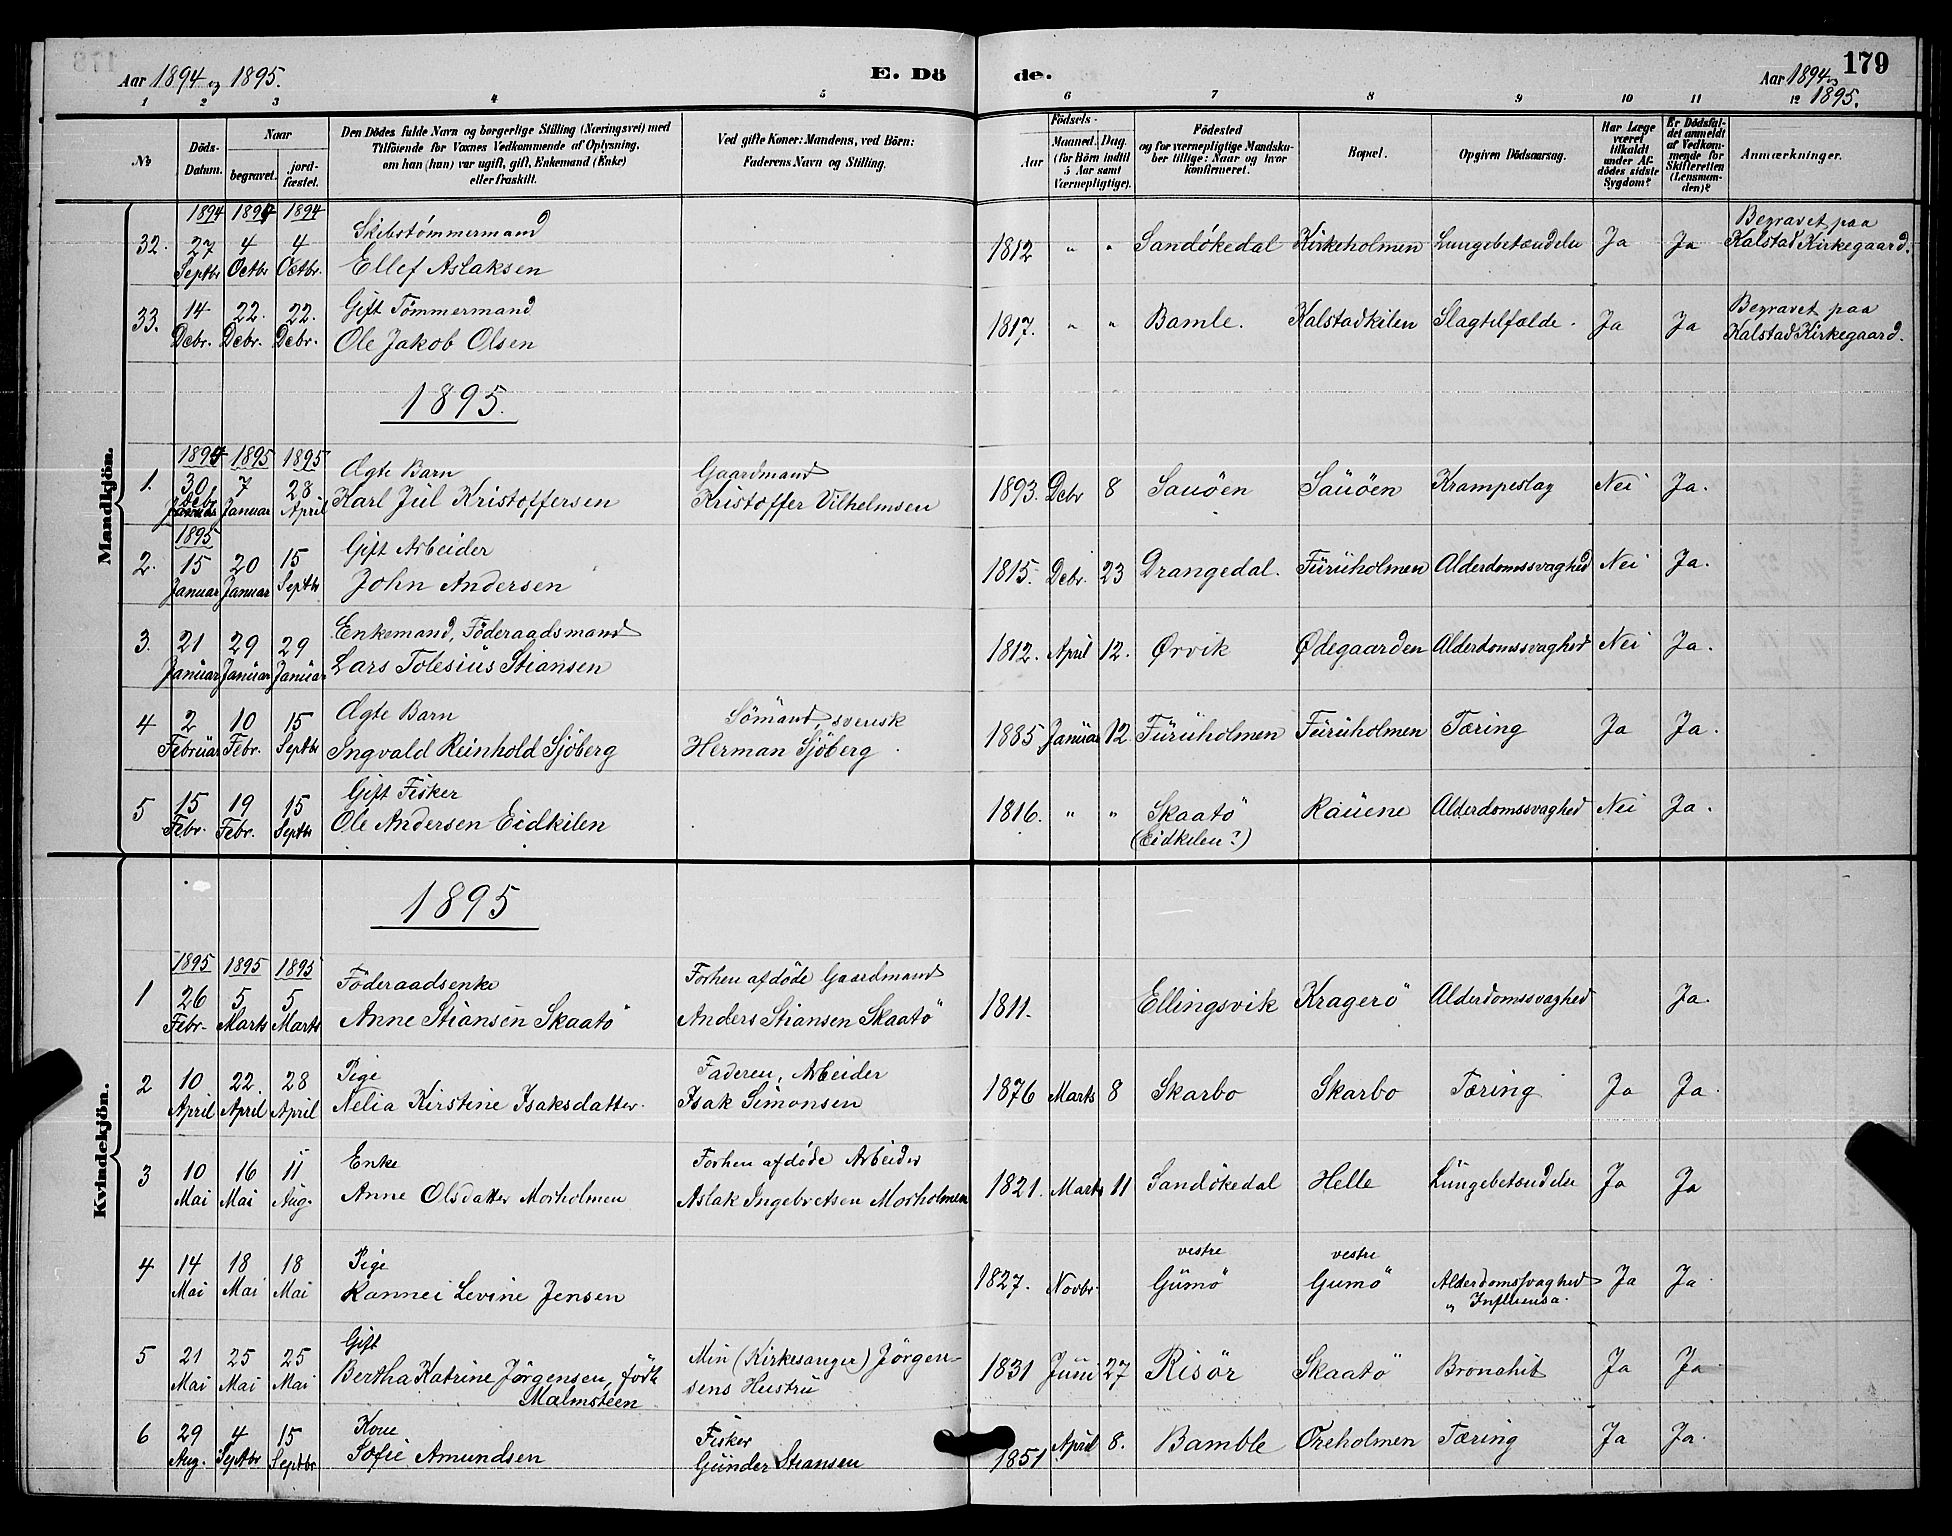 Aar 1894 og 1895.
E. Dö
de.
Aar 1894 og 1895.
179
1 2 3 4 5 6 7 8 9 10 11 12
No
Döds-Datum.
Naar
begravet.
jordfæstet.
Den Dödes fulde Navn og borgerlige Stilling (Næringsvei) med
Tilföiende for Voxnes Vedkommende af Oplysning,
om han (hun) var ugift, gift, Enkemand (Enke)
eller fraskilt.
Ved gifte Koner: Mandens, ved Börn:
Faderens Navn og Stilling.
Födsels-
Aar
Maaned. Dag.
(for Börn indtil
5 Aar samt
Værnepligtige).
Födested
og for værnepligtige Mandsku-
ber tillige: Naar og hvor
konfirmeret.
Bopæl.
Opgiven Dödsaarsag.
Har Læge
været
tilkaldt
under Af-
dödes sidste
Sygdom?
Er Dödsfal-
det anmeldt
af Vedkom-
mende for
Skifteretten
(Lensman-
den)?
Anmærkninger.
Mandkjön.
1894 1894 1894
32. 27 Septbr 4 Octbr 4 Octbr. Skibstømmermand
Ellef Aslaksen
1812 " " Sandökedal Kirkeholmen Lungebetændelse Ja Ja Begravet paa
Kalstad Kirkegaard.
33. 14 Debr. 22. Debr. 22. Debr. Gift Tömmermand
Ole Jakob Olsen
1817. " " Bamle. Kalstadkilen Slagtilfælde. Ja Ja Begravet paa
Kalstad Kirkegaard.
1895.
1894 1895 1895
1. 30 Debr 7 Januar 28 April Ægte Barn
Karl Jul Kristoffersen
Gaardmand
Kristoffer Vilhelmsen
1893. Debr 8 Sauöen Sauöen Krampeslag Nei Ja.
1895
2. 15 Januar 20 Januar 15 Septbr Gift Arbeider
John Andersen
1815. Debr. 23 Drangedal. Furuholmen Alderdomssvaghed Nei Ja.
3. 21 Januar 29 Januar 29 Januar Enkemand, Föderaadsmand
Lars Tolesius Stiansen
1812. April 12. Ørvik Ødegaarden Alderdomssvaghed Nei Ja.
4 2 Februar 10 Febr. 15 Septbr Ægte Barn
Ingvald Reinhold Sjöberg
Sömand, svensk
Herman Sjöberg
1885 Januar 12 Furuholmen Furuholmen Tæring Ja Ja.
5 15 Febr. 19 Febr. 15 Septbr Gift Fisker
Ole Andersen Eidkilen
1816. " " Skaatö
(Eidkilen?)
Rauene Alderdomssvaghed Nei Ja.
Kvindekjön.
1895
1895 1895 1895
1 26 Febr. 5 Marts 5 Marts Föderaadsenke
Anne Stiansen Skaatö
Forhen afdöde Gaardmand
Anders Stiansen Skaatö
1811. Ellingsvik Kragerö Alderdomssvaghed Ja.
2 10 April 22 April 28 April Pige
Nelia Kirstine Isaksdatter.
Faderen, Arbeider
Isak Simonsen
1876 Marts 8 Skarbo Skarbo Tæring Ja Ja.
3 10 Mai 16 Mai 11 Aug. Enke
Anne Olsdatter Morholmen
Forhen afdöde Arbeider
Aslak Ingebretsen Morholmen
1821. Marts 11 Sandökedal Helle Lungebetændelse Ja Ja
4 14 Mai 18 Mai 18 Mai Pige
Rannei Levine Jensen
1827. Novbr. vestre Gumö vestre Gumö Alderdomssvaghed
og Influensa.
Ja Ja
5 21 Mai 25 Mai 25 Mai Gift
Bertha Katrine Jørgensen, födt
Malmsteen
Min (Kirkesanger) Jörgen-
sens Hustru
1831 Juni 27 Risör Skaatö Bronchit Ja Ja
6 29 Aug. 4 Septbr 15 Septbr. Kone
Sofie Amundsen
Fisker
Gunder Stiansen
1851 April 8. Bamble Oreholmen Tæring Ja Ja.